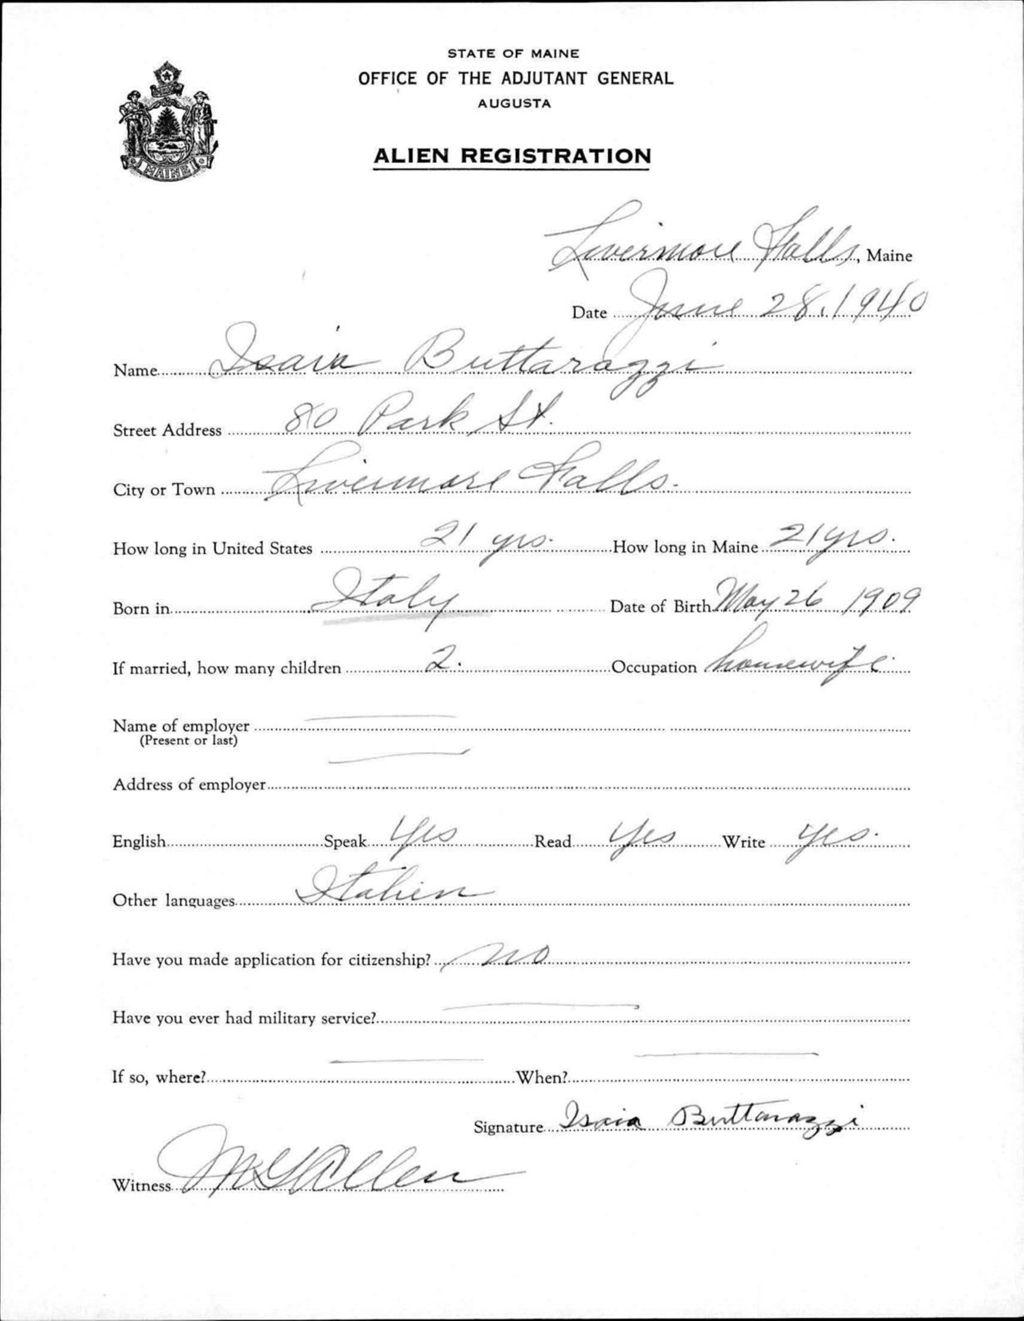 STATE OF MAINE
OFFICE OF THE ADJUTANT GENERAL
AUGUSTA
ALIEN REGISTRATION
MAINE
Livermore Falls, Maine
Date June 28, 1940
Name Isaia Buttarazzi
Street Address 80 Park St.
City or Town Livermore Falls.
How long in United States 21 yrs. How long in Maine 21 yrs.
Born in Italy Date of Birth May 26 1909
If married, how many children 2. Occupation housewife.
Name of employer
(Present or last)
Address of employer
English Speak Yes Read Yes Write Yes.
Other languages Italien
Have you made application for citizenship? no
Have you ever had military service?
If so, where? When?
Signature Isaia Buttarazzi
Witness Allen